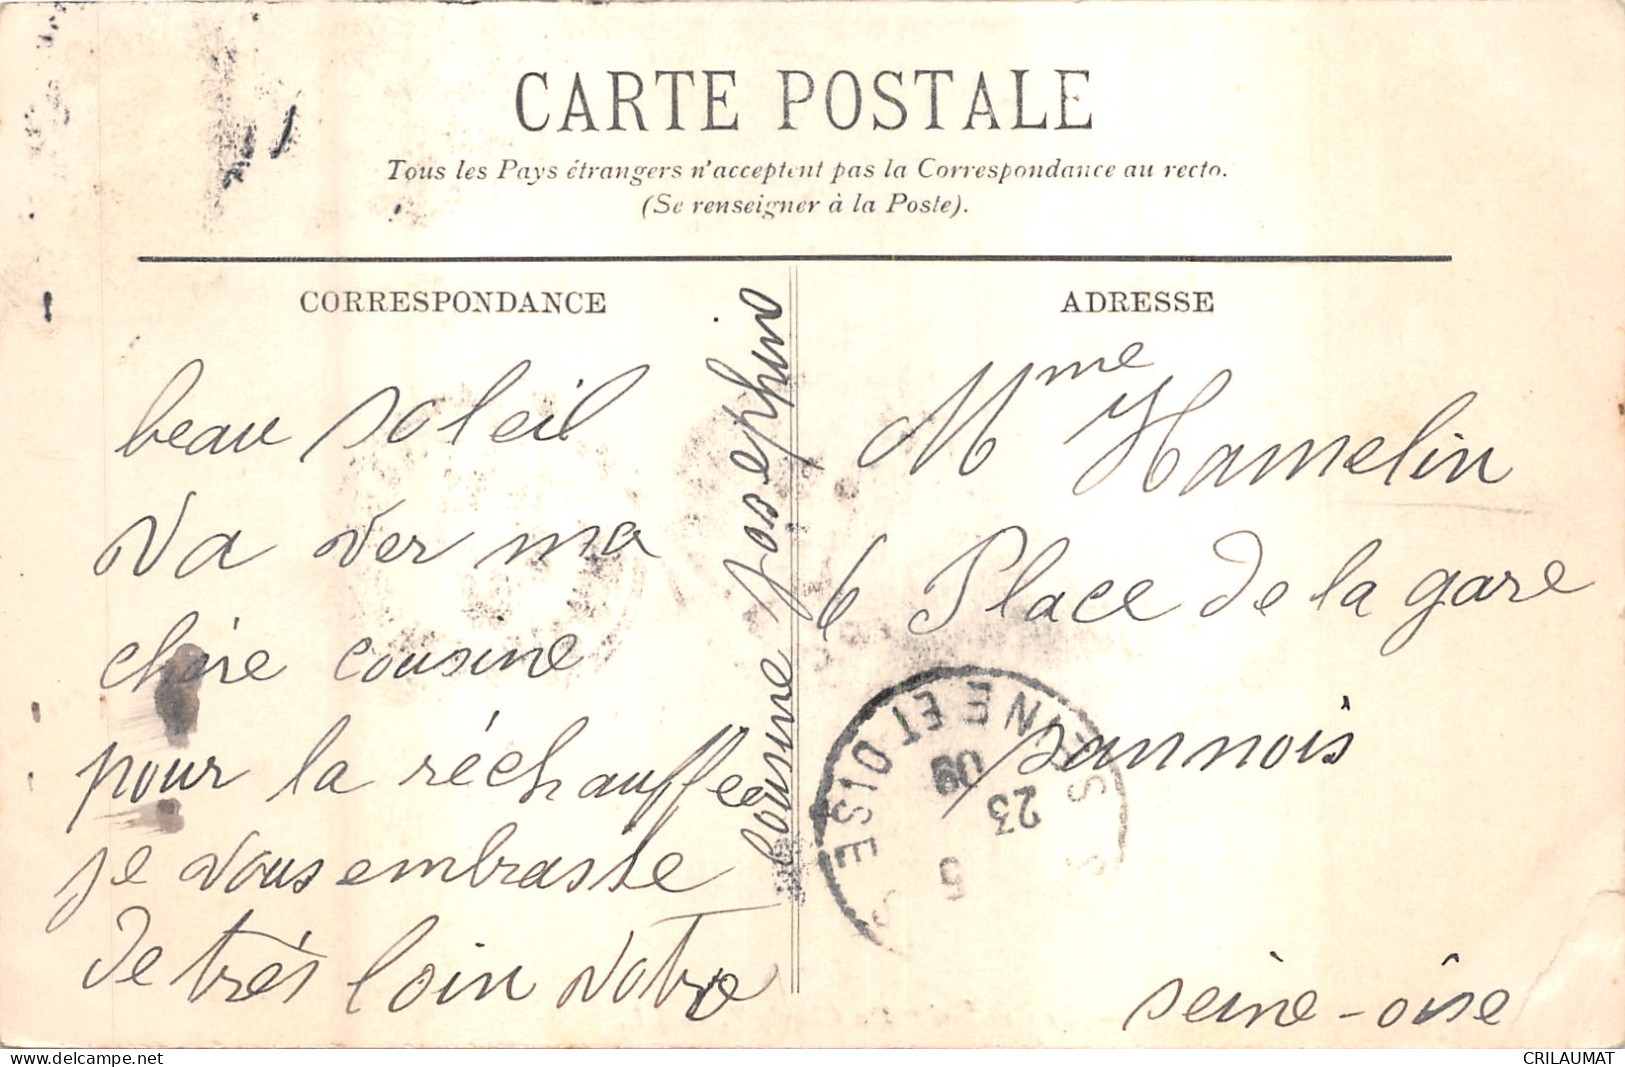 CARTE POSTALE
Tous les Pays étrangers n'acceptent pas la Correspondance au recto.
(Se renseigner à la Poste).
CORRESPONDANCE
beau soleil
va ver ma
chère cousine
pour la réchauffee
je vous embrasse
de très loin votre
cousine josephine
ADRESSE
Mme Hamelin
6 Place de la gare
sannois
seine-oise
SEINE ET OISE
23
5
09
www.delcampe.net
CRILAUMAT